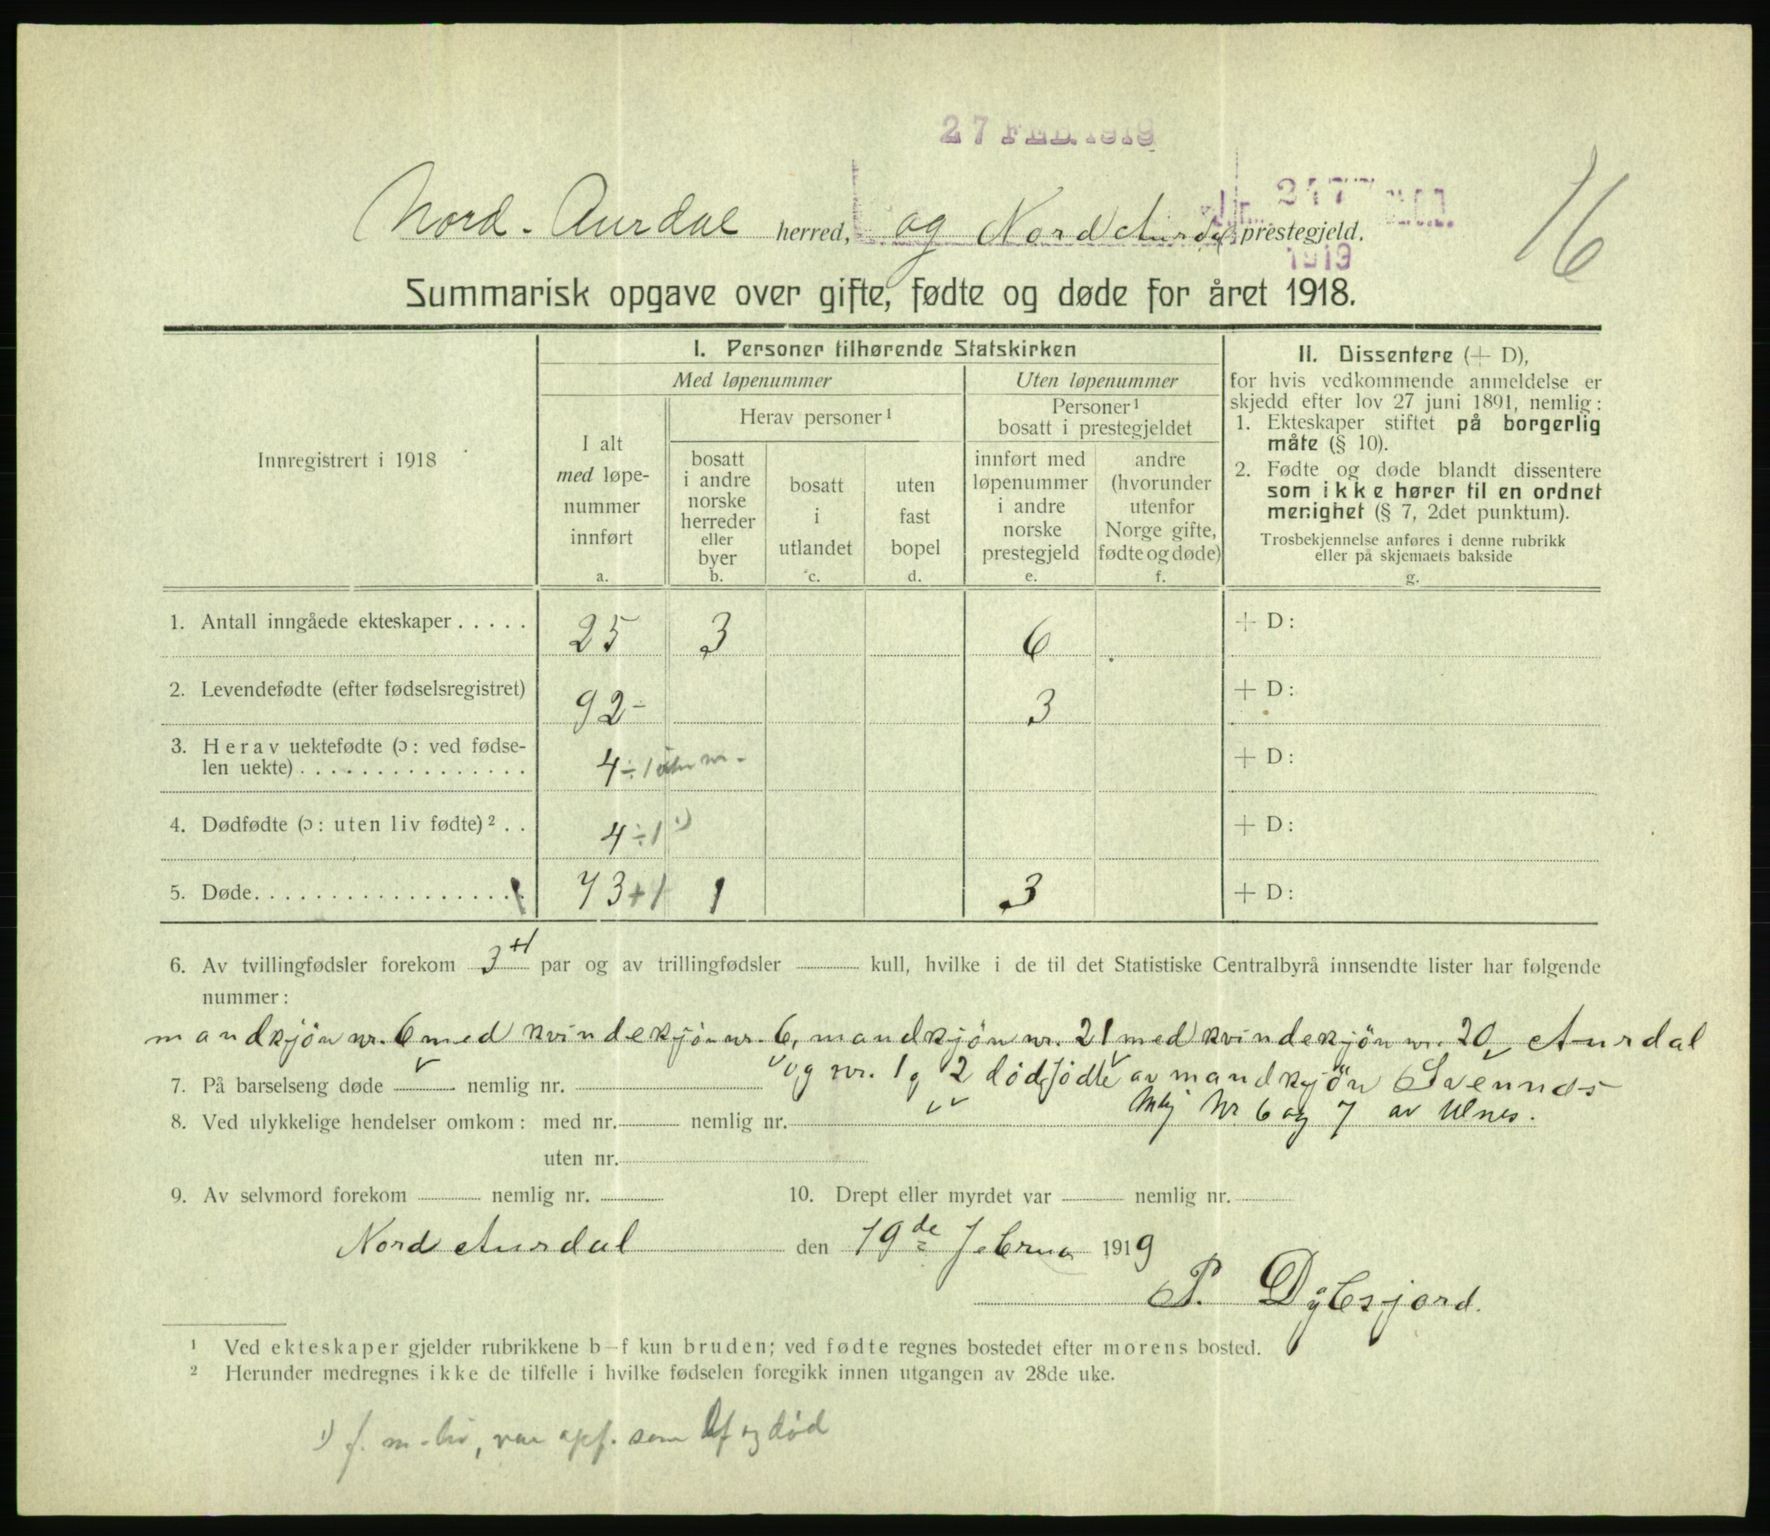 27 FEB. 1919
Nord-Aurdal herred, og Nord Aurdal prestegjeld.
1919
16
Summarisk opgave over gifte, fødte og døde for året 1918.
Innregistrert i 1918
I. Personer tilhørende Statskirken
Med løpenummer
Uten løpenummer
I alt
med løpe-
nummer
innført
a.
Herav personer ¹
bosatt
i andre
norske
herreder
eller
byer
b.
bosatt
i
utlandet
c.
uten
fast
bopel
d.
Personer ¹
bosatt i prestegjeldet
innført med
løpenummer
i andre
norske
prestegjeld
e.
andre
(hvorunder
utenfor
Norge gifte,
fødte og døde)
f.
II. Dissentere (+ D),
for hvis vedkommende anmeldelse er
skjedd efter lov 27 juni 1891, nemlig:
1. Ekteskaper stiftet på borgerlig
måte (§ 10).
2. Fødte og døde blandt dissentere
som ikke hører til en ordnet
menighet (§ 7, 2det punktum).
Trosbekjennelse anføres i denne rubrikk
eller på skjemaets bakside
g.
1. Antall inngåede ekteskaper ..... 25 3 6 + D:
2. Levendefødte (efter fødselsregistret) 92- 3 + D:
3. Herav uektefødte (ɔ: ved fødse-
len uekte) ............... 4 ÷1 + D:
4. Dødfødte (ɔ: uten liv fødte) ² .. 4 ÷1 ¹) + D:
5. Døde ................. 73 +1 1 3 + D:
6. Av tvillingfødsler forekom 3 +1 par og av trillingfødsler kull, hvilke i de til det Statistiske Centralbyrå innsendte lister har følgende
nummer:
mandkjøn nr. 6 med kvindekjøn nr. 6, mandkjøn nr. 21 med kvindekjøn nr. 20, Aurdal
og nr. 1 og 2 dødfødte av mandkjøn Svennes
7. På barselseng døde nemlig nr.
Mkj Nr 6 og 7 av Ulnes.
8. Ved ulykkelige hendelser omkom: med nr. nemlig nr.
uten nr.
9. Av selvmord forekom nemlig nr. 10. Drept eller myrdet var nemlig nr.
Nord Aurdal den 19de Februa 1919
P. Dybsjord.
¹ Ved ekteskaper gjelder rubrikkene b–f kun bruden; ved fødte regnes bostedet efter morens bosted.
² Herunder medregnes ikke de tilfelle i hvilke fødselen foregikk innen utgangen av 28de uke.
¹) f. m. liv, var opf. som df og død